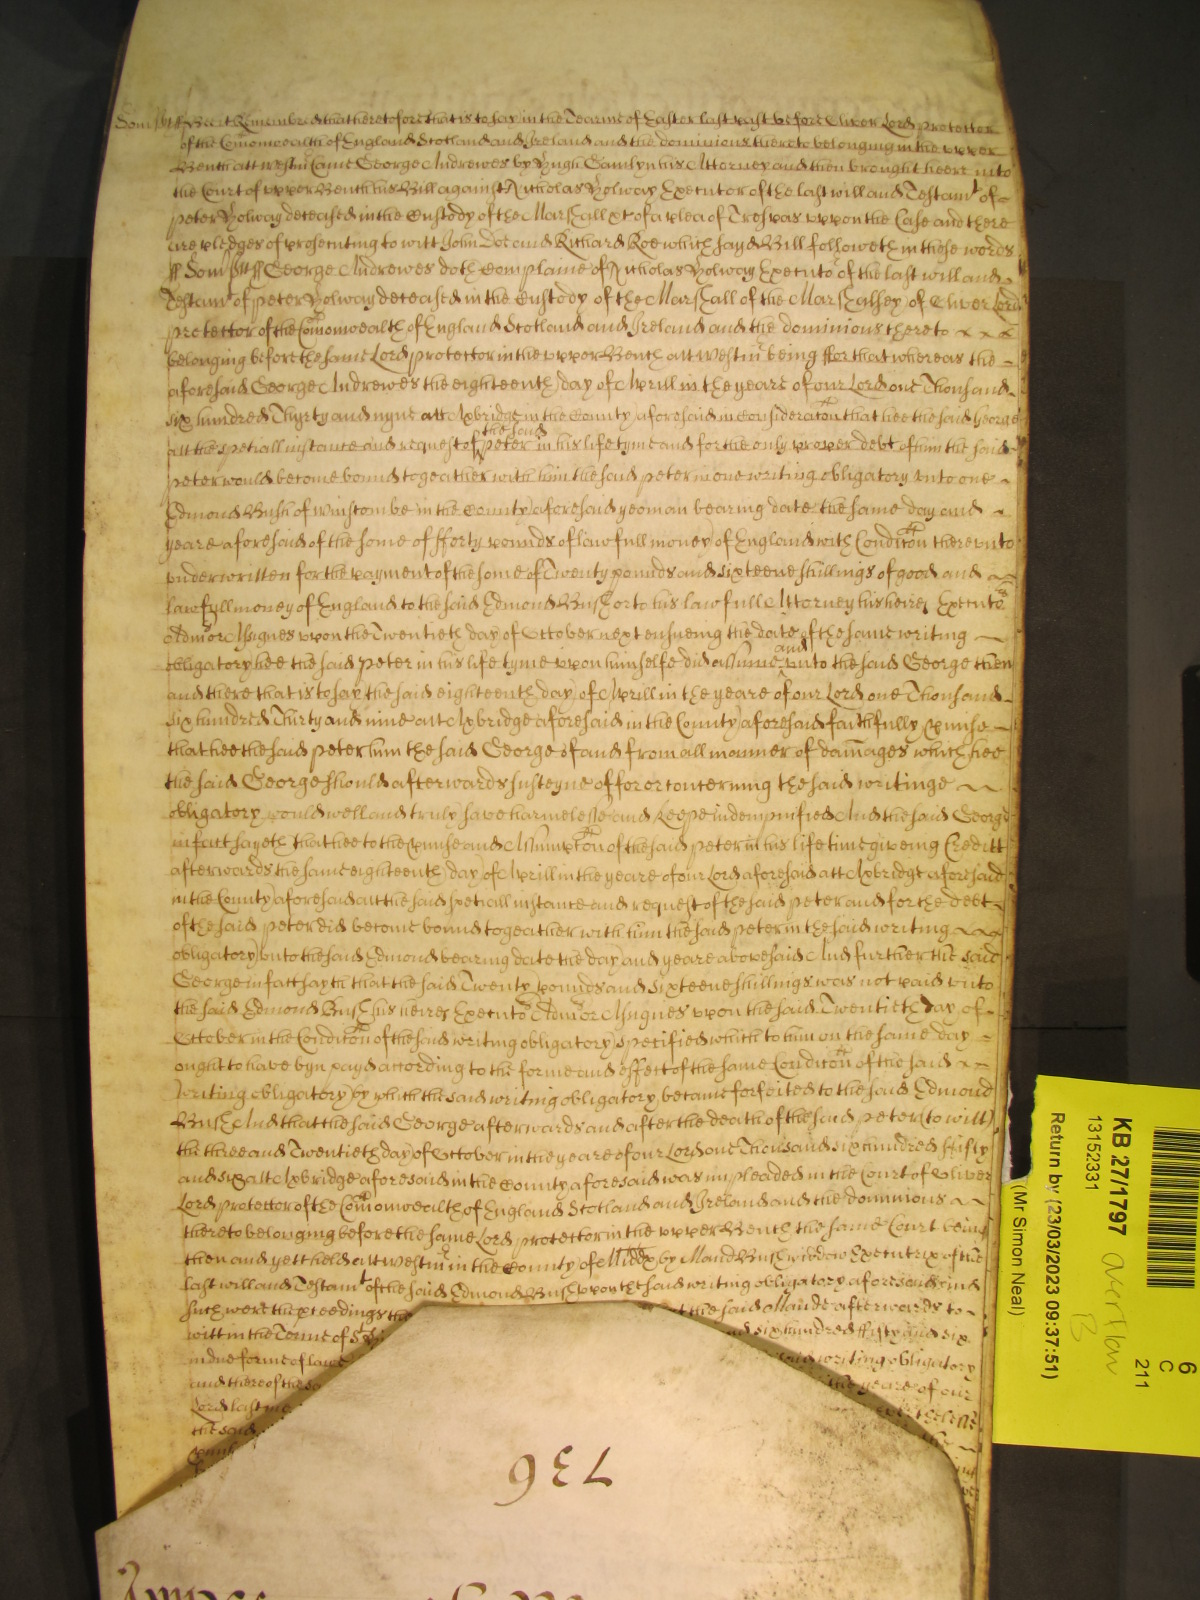 Som̃ss ff Bee it Remembred that heretofore that is to say in the Tearme of Easter last past before Oliver Lord protector
of the Com̃onwealth of England Scotland and Ireland and the dominions thereto belonging in the upper
Bench att Westm̃ Came George Andrewes by Hugh Gamlyn his Attorney and then brought heere into
the Court of upper Bench his Bill against Nicholas Yolway Executor of the last will and Testamt of
peter Yolway deceased in the Custody of the Marshall &c of a plea of Trespas uppon the Case and there
are pledges of prosecuting to witt John Doe and Richard Roe which sayd Bill followeth in these words
ff Som̃ss ff George Andrewes doth Complaine of Nicholas Yolway Executor of the last will and
Testamt of peter Yolway deceased in the Custody of the Marshall of the Marshallsey of Oliver Lord
protector of the Com̃onwealth of England Scotland and Ireland and the dominions thereto
belonging before the same Lord protector in the upper Bench att Westm̃ being ffor that whereas the
aforesaid George Andrewes the eighteenth day of Aprill in the yeare of our Lord one Thousand
six hundred Thirty and nyne att Axbridge in the County aforesaid in Consideracõn that hee the said George
att the speciall instance and request of the said peter in his life tyme and for the only proper debt of him the said
peter would become bound togeather with him the said peter in one writing obligatory unto one
Edmond Bush of Winscombe in the County aforesaid yeoman bearing date the same day and
yeare aforesaid of the some of fforty pounds of lawfull money of England with Condicõn thereunto
underwritten for the payment of the some of Twenty pounds and sixteene shillings of good and
lawfull money of England to the said Edmond Bush or to his lawfull Attorney his heires Executors
Admors Assignes uppon the Twentieth day of October next ensueing the date of the same writing
obligatory hee the said peter in his life tyme uppon himselfe did assume and unto the said George then
and there that is to say the said eighteenth day of Aprill in the yeare of our Lord one Thousand
six hundred Thirty and nine att Axbridge aforesaid in the County aforesaid faithfully p̱mise
that hee the said peter him the said George of and from all manner of dam̃ages which hee
the said George should afterwards susteyne of for or concerning the said writinge
obligatory would well and truly save harmelesse and keepe indempnified And the said George
in fact sayeth that hee to the p̱mise and Assumpcõn of the said peter in his life time giveing Creditt
afterwards the same eighteenth day of Aprill in the yeare of our Lord aforesaid att Axbridge aforesaid
in the County aforesaid att the said speciall instance and request of the said peter and for the debt
of the said peter did become bound togeather with him the said peter in the said writing
obligatory unto the said Edmond bearing date the day and yeare abovesaid And further the said
George in fact sayth that the said Twenty pounds and sixteene shillings was not paid unto
the said Edmond Bush his heires Executors Admors Assignes uppon the said Twentieth day of
October in the Condicõn of the said writing obligatory specified which to him on the same day
ought to have byn payd according to the forme and effect of the same Condicõn of the said
writing obligatory by which the said writing obligatory became forfeited to the said Edmond
Bush And that the said George afterwards and after the death of the said peter (to witt)
the three and Twentieth day of October in the yeare of our Lord one Thousand six hundred ffifty
and six att Axbridge aforesaid in the County aforesaid was impleaded in the Court of Oliver
Lord protector of the Com̃onwealth of England Scotland and Ireland and the dominions
thereto belonging before the same Lord protector in the upper Bench the same Court being
then and yett held att Westm̃ in the County of Midd̃x by Maud Bush widdow Executrix of the
last will and Testamt of the said Edmond Bush uppon the said writing obligatory aforesaid and
such were the p̱ceedings the t the said Maude afterwards to
witt in the Terme of St d six hundred ffifty and six
in due forme of lawe said writing obligatory
and thereof the sa the yeare of our
Lord last ertheless
the said the
736
KB 27/1797
13152331
Return by (23/03/2023 09:37:51)
(Mr Simon Neal)
overflow
B
6
C
211